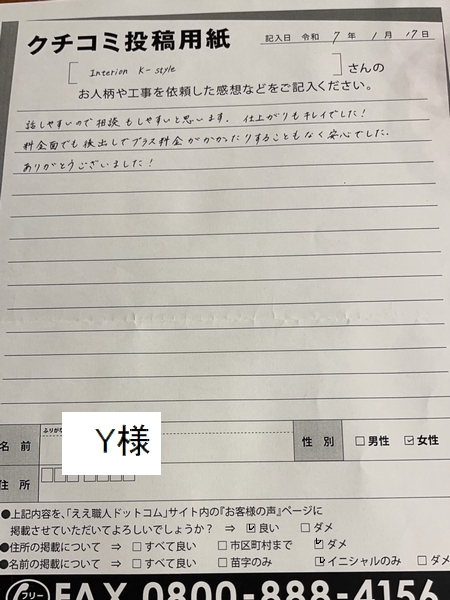 クチコミ投稿用紙
記入日 令和 7 年 1 月 17 日
[ Interion K-style ] さんの
お人柄や工事を依頼した感想などをご記入ください。
話しやすいので相談もしやすいと思います。仕上がりもキレイでした!
料金面でも後出しでプラス料金がかかったりすることもなく安心でした。
ありがとうございました!
ふりがな
名 前 Y様 性 別 □男性 ☑女性
住 所
●上記内容を、「ええ職人ドットコム」サイト内の『お客様の声』ページに
掲載させていただいてよろしいでしょうか? ⇒ ☑良い □ダメ
●住所の掲載について ⇒ □すべて良い □市区町村まで ☑ダメ
●名前の掲載について ⇒ □すべて良い □苗字のみ ☑イニシャルのみ □ダメ
フリー FAX 0800-888-4156